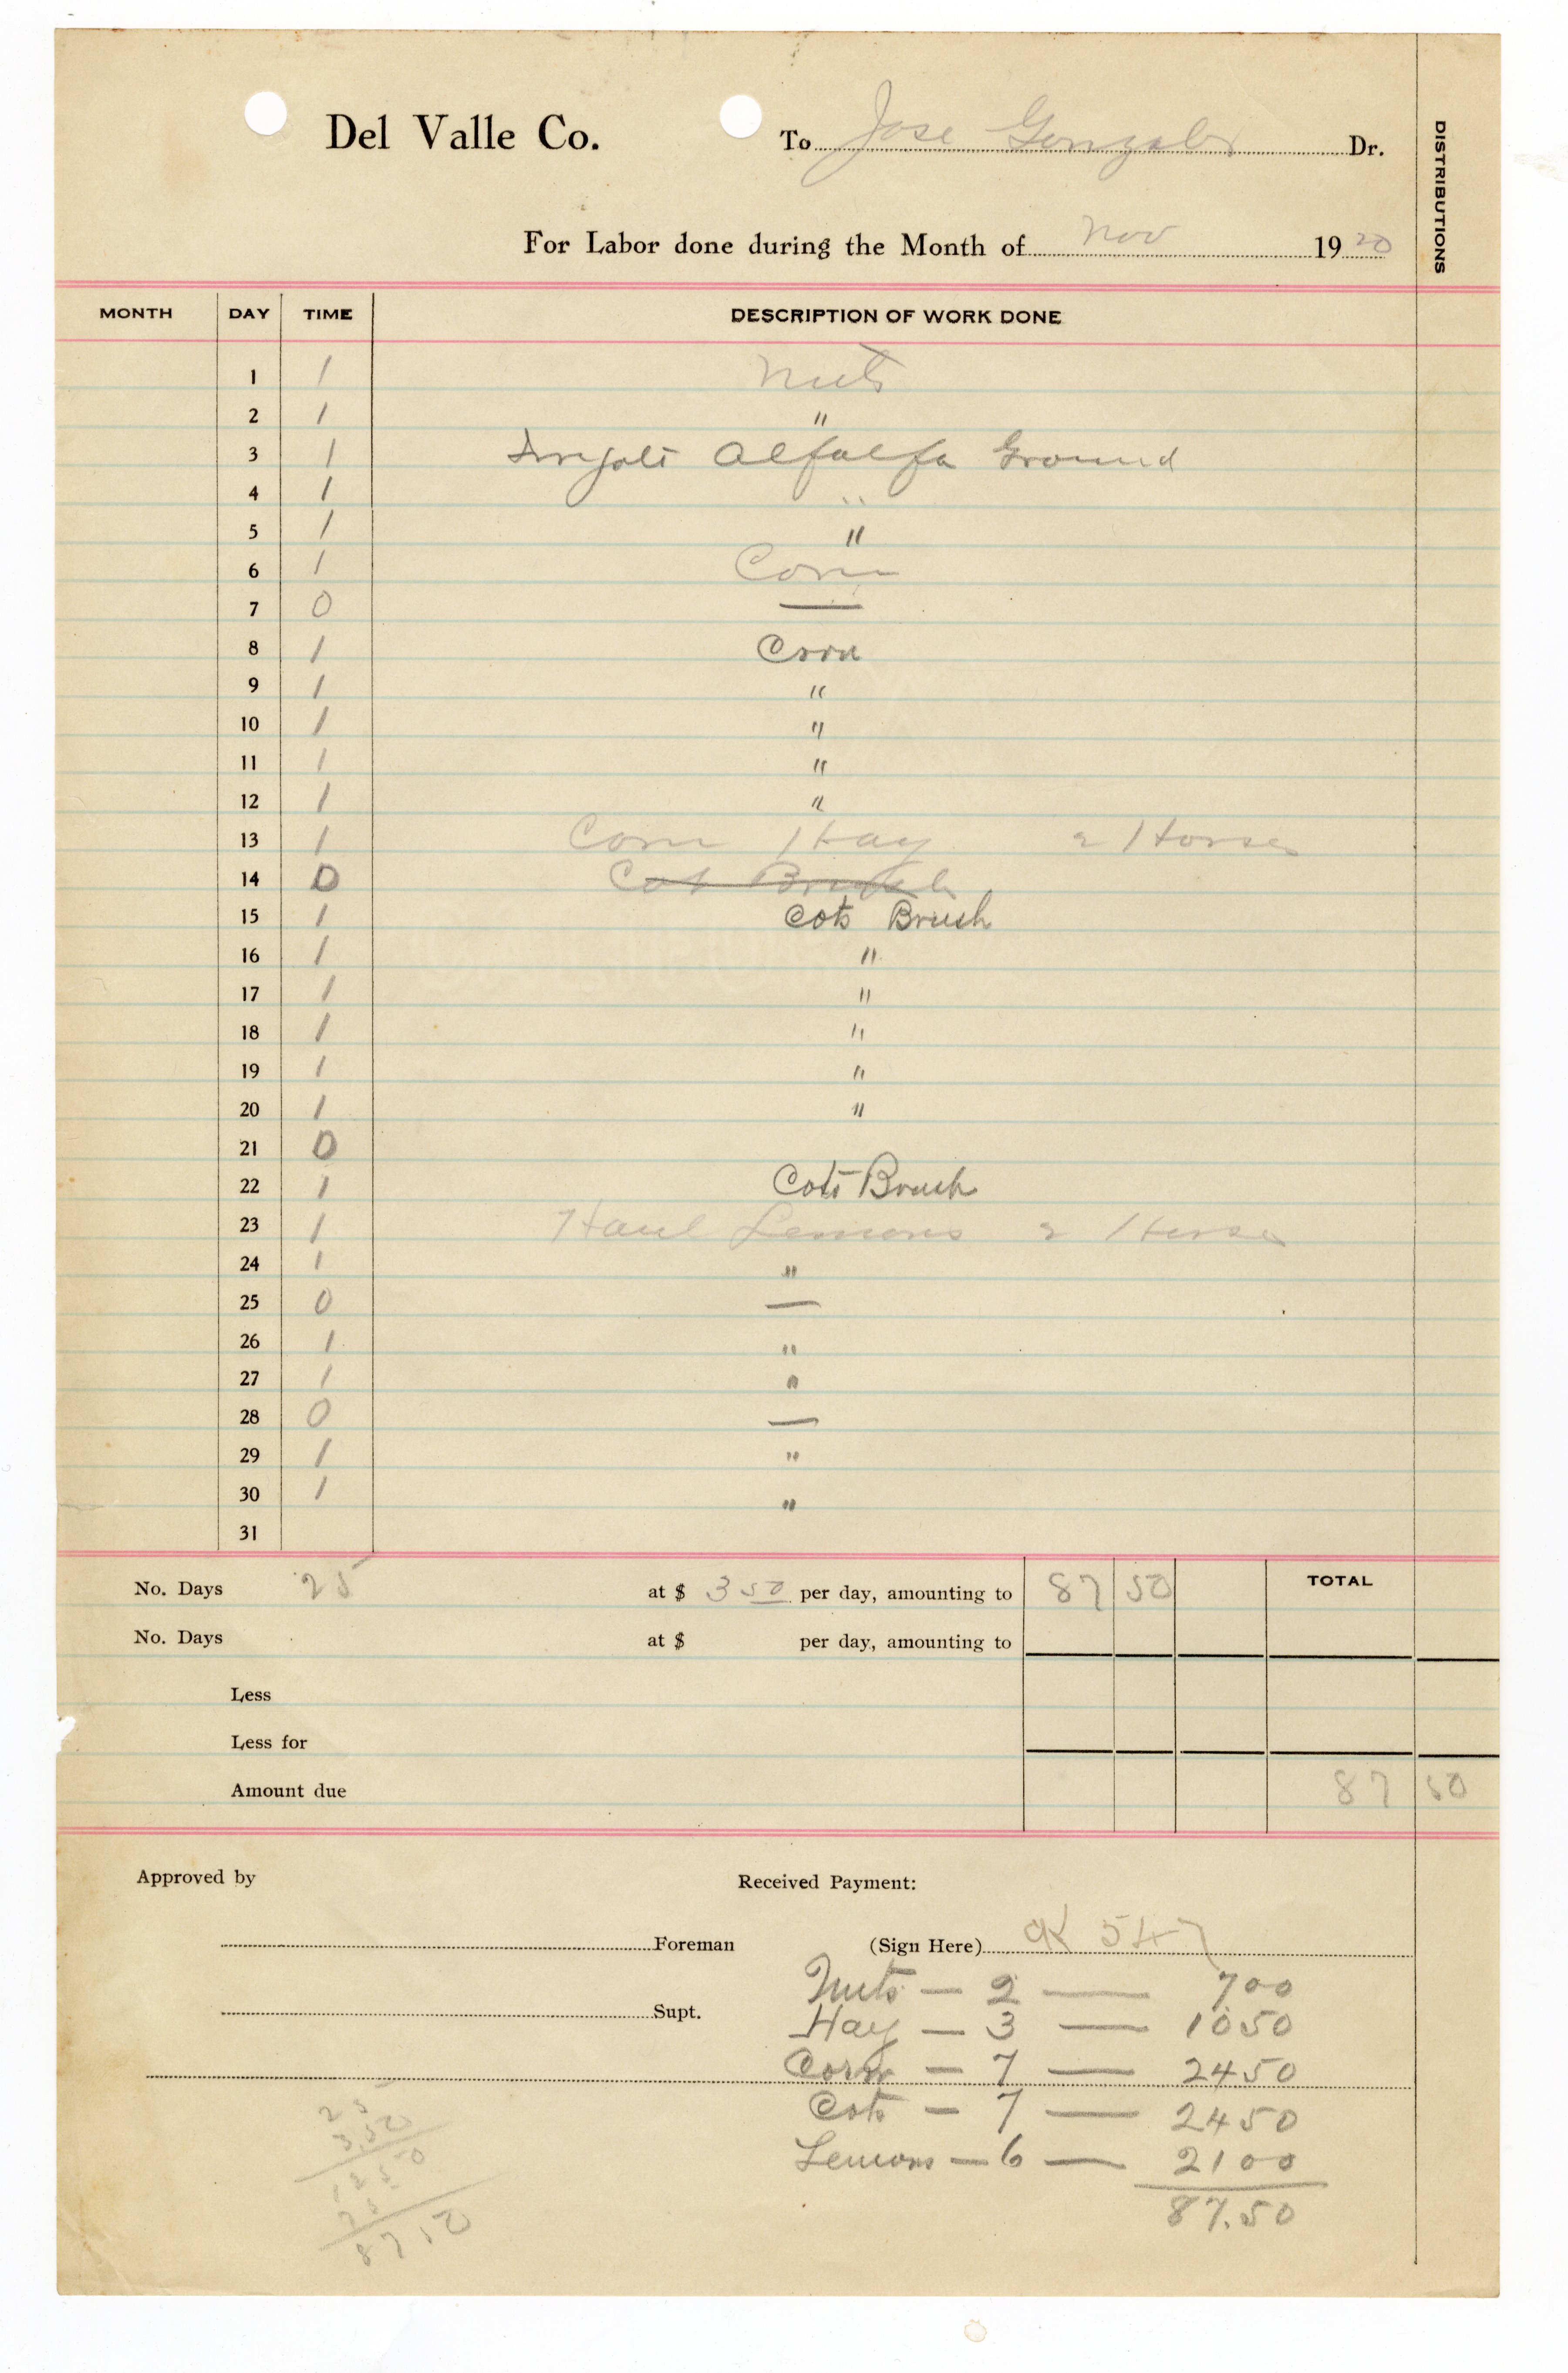 Del Valle Co. To Jose Gonzales Dr.
DISTRIBUTIONS
For Labor done during the Month of Nov 1920
MONTH DAY TIME DESCRIPTION OF WORK DONE
1 1 Nuts
2 1 "
3 1 Alfalfa Ground
4 1 "
5 1 "
6 1 Corn
7 0 —
8 1 Corn
9 1 "
10 1 "
11 1 "
12 1 "
13 1 Corn Hay 2 Horses
14 0 Cot Brush
15 1 Cots Brush
16 1 "
17 1 "
18 1 "
19 1 "
20 1 "
21 0
22 1 Cots Brush
23 1 Haul Lemons 2 Horses
24 1 "
25 0 —
26 1 "
27 1 "
28 0 —
29 1 "
30 1 "
31
No. Days 25 at $ 3 50 per day, amounting to 87 50 TOTAL
No. Days at $ per day, amounting to
Less
Less for
Amount due 87 50
Approved by Received Payment:
Foreman (Sign Here) 547
Nuts — 2 — 700
Supt.
Hay — 3 — 1050
Corn — 7 — 2450
Cots — 7 — 2450
Lemons — 6 — 2100
87.50
25
350